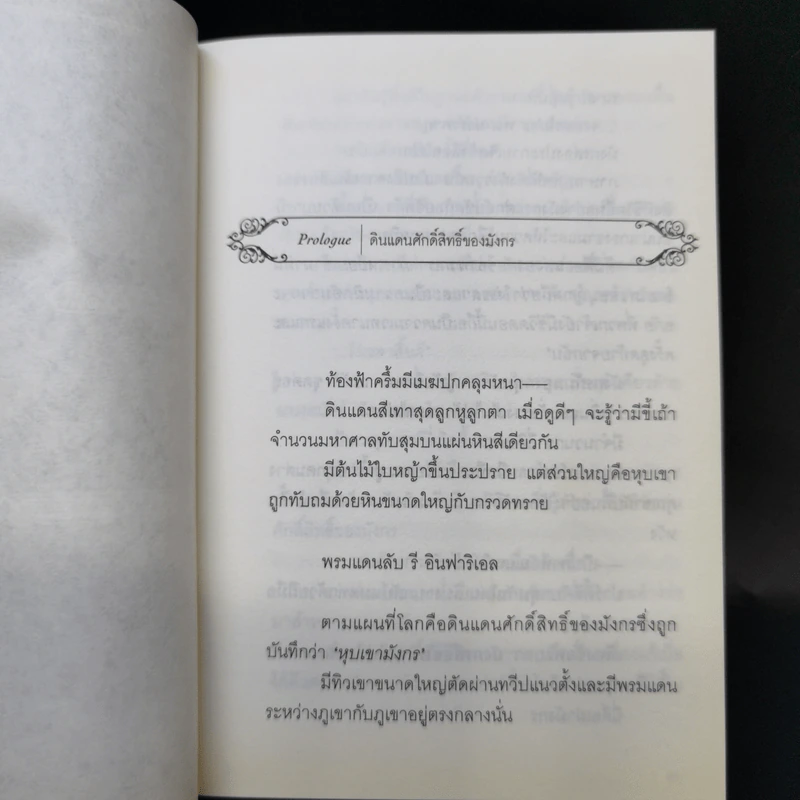 Prologue | ดินแดนศักดิ์สิทธิ์ของมังกร
ท้องฟ้าครึ้มมีเมฆปกคลุมหนา——
ดินแดนสีเทาสุดลูกหูลูกตา เมื่อดูดีๆ จะรู้ว่ามีขี้เถ้า
จำนวนมหาศาลทับสุมบนแผ่นหินสีเดียวกัน
มีต้นไม้ใบหญ้าขึ้นประปราย แต่ส่วนใหญ่คือหุบเขา
ถูกทับถมด้วยหินขนาดใหญ่กับกรวดทราย
พรมแดนลับ รี อินฟาริเอล
ตามแผนที่โลกคือดินแดนศักดิ์สิทธิ์ของมังกรซึ่งถูก
บันทึกว่า ‘หุบเขามังกร’
มีทิวเขาขนาดใหญ่ตัดผ่านทวีปแนวตั้งและมีพรมแดน
ระหว่างภูเขากับภูเขาอยู่ตรงกลางนั่น